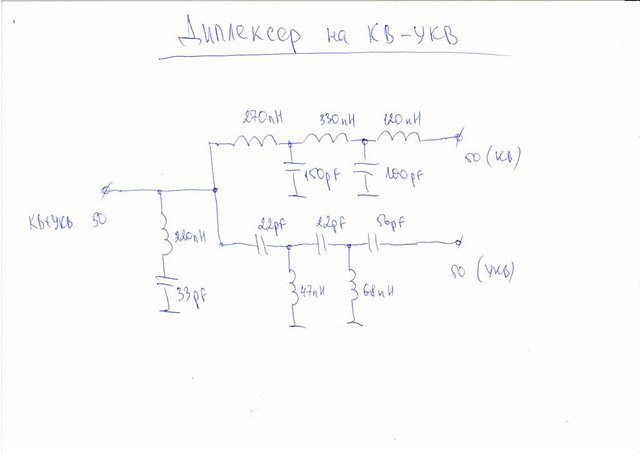 Диплексер на КВ-УКВ
270nH 330nH 120nH
50 (КВ)
150pF 100pF
КВ+УКВ 50
22pF 22pF 56pF
220nH
50 (УКВ)
33pF
47nH 68nH